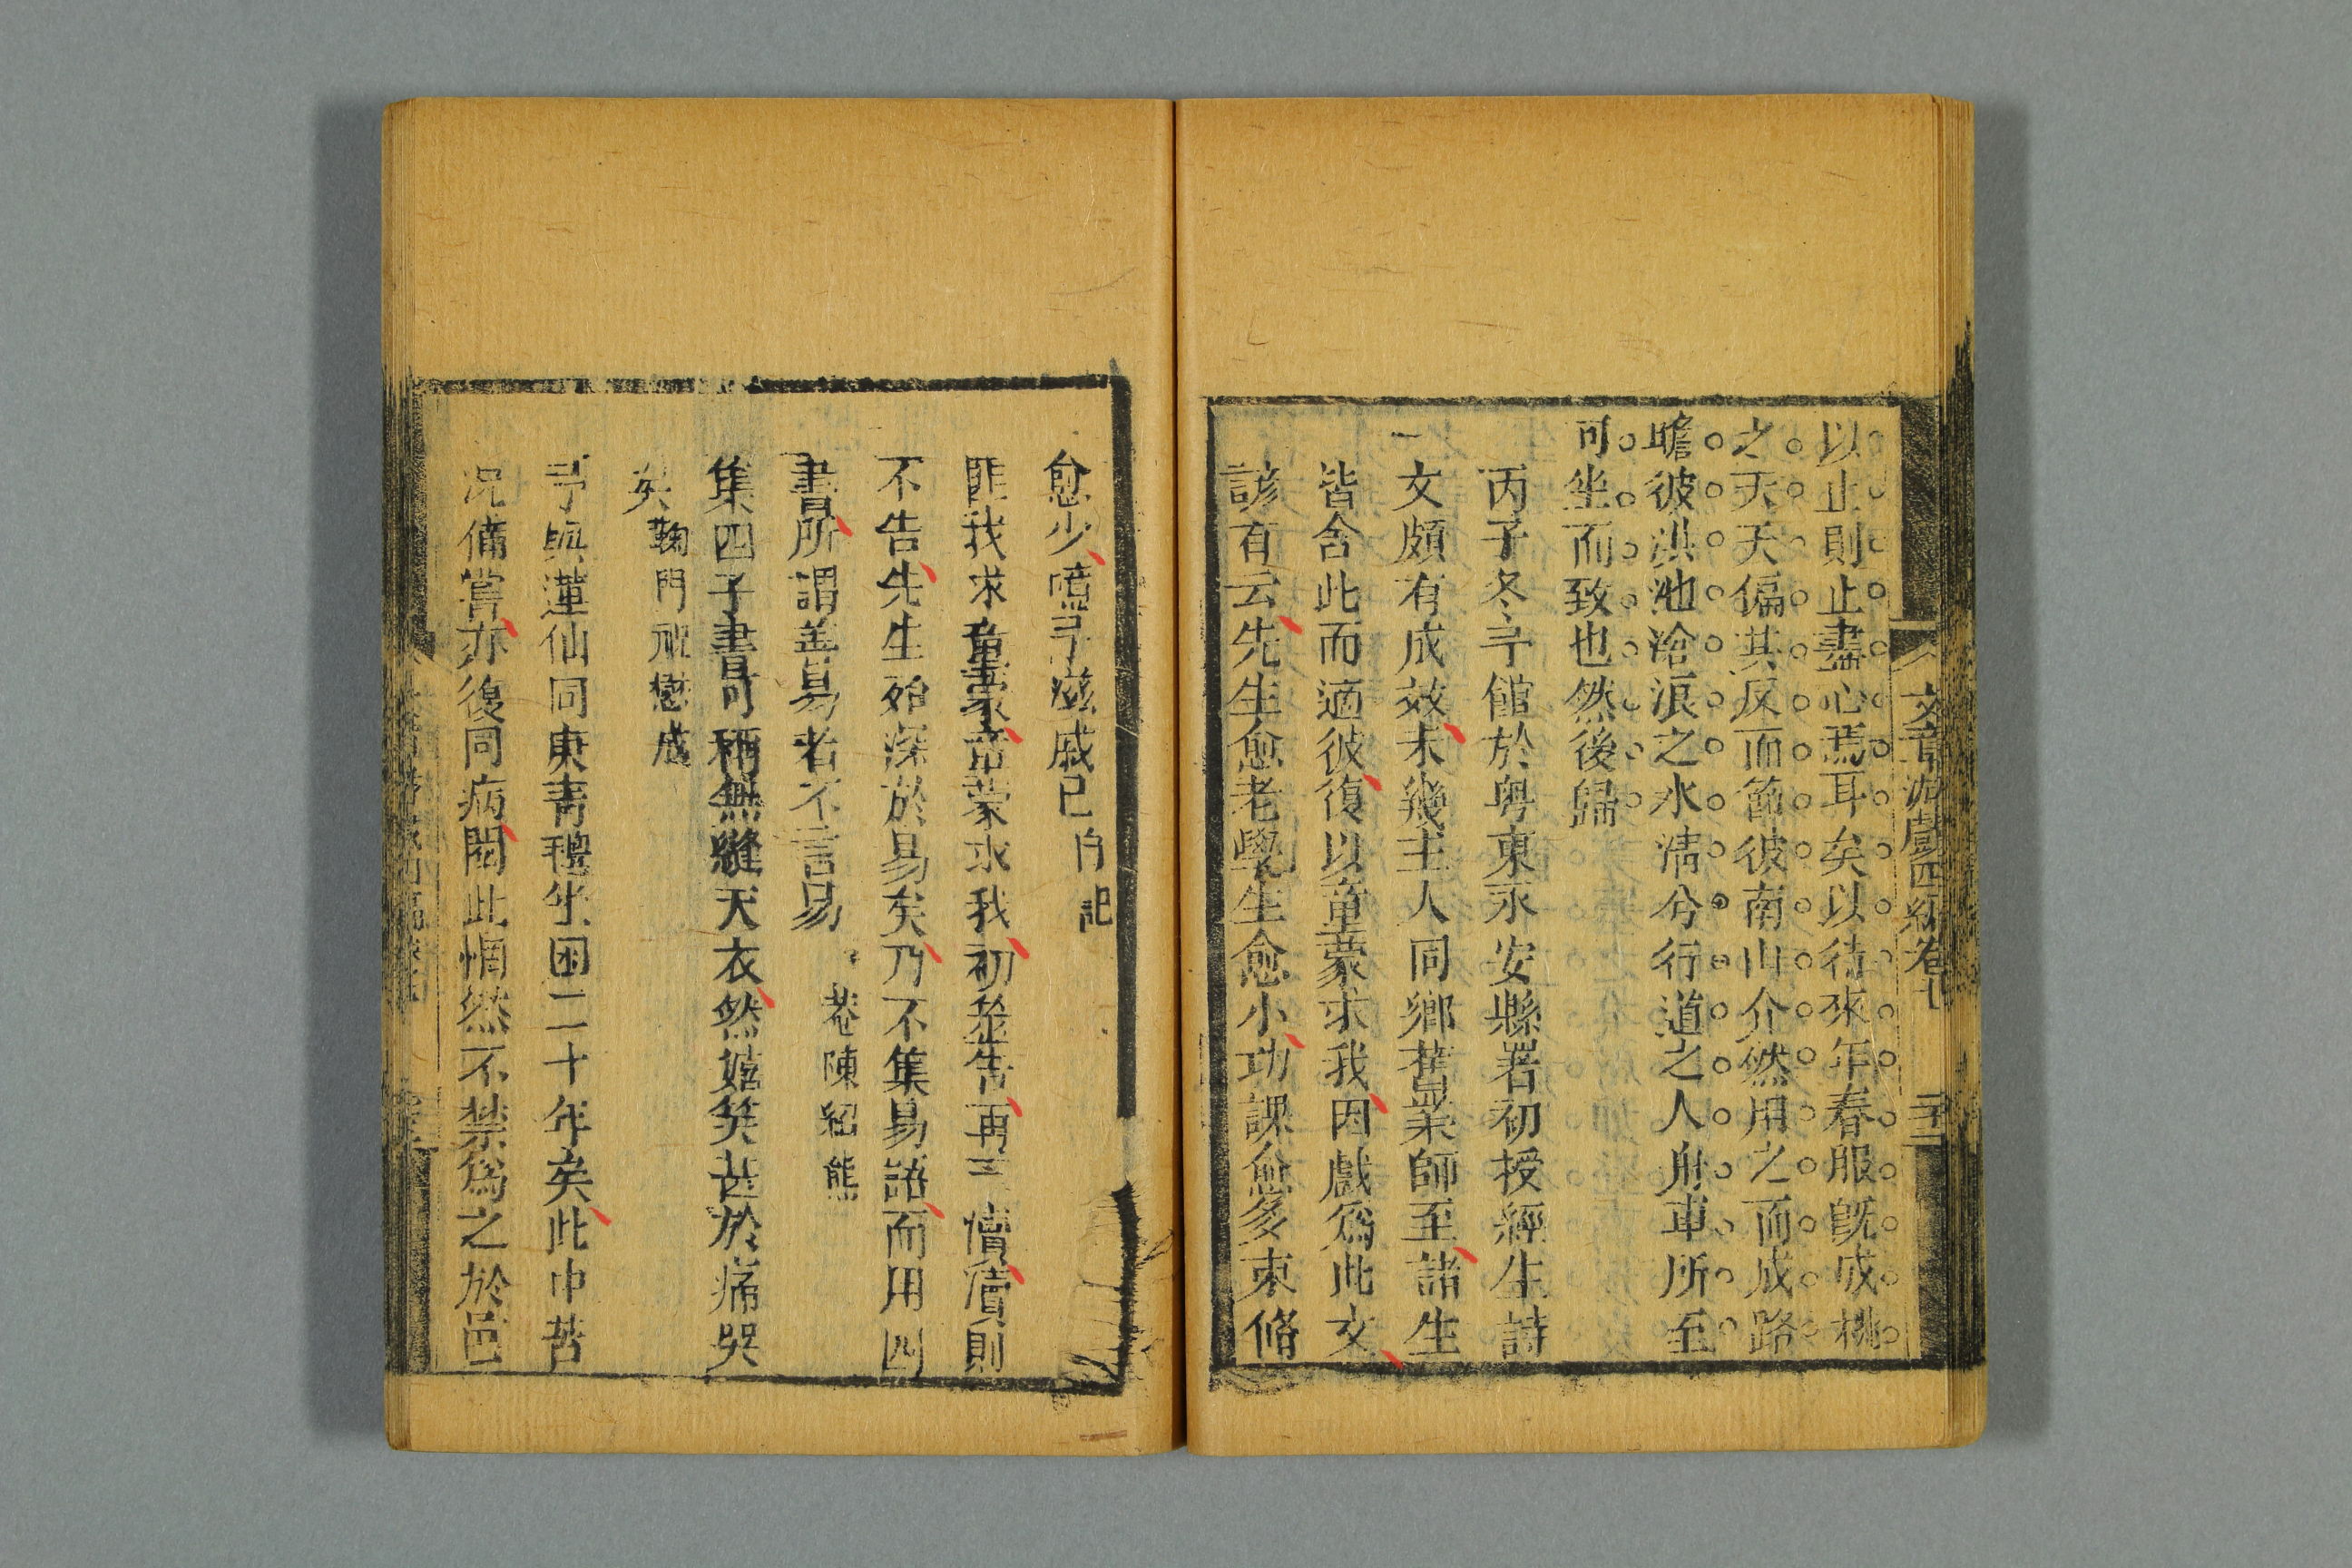 以止則止盡心焉耳矣以待來年春服既成桃
之夭夭偏其反而節彼南山介然用之而成路
瞻彼淇池滄浪之水清兮行道之人舟車所至
可坐而致也然後歸
丙子冬予館於粤東永安縣署初授經生詩
文頗有成效未幾主人同鄉舊業師至諸生
皆舍此而適彼復以童蒙求我因戲為此文
諺有云先生愈老學生愈小功課愈多束脩
文章游戲四編卷七
愈少噫予滋戚已 自記
匪我求童蒙童蒙求我初筮告再三瀆瀆則
不告先生殆深於易矣乃不集易語而用四
書所謂善易者不言易
菴陳紹熊
集四子書可稱無縫天衣然嬉笑甚於痛哭
矣 鞠門 懋成
予與蓮仙同庚青氊坐困二十年矣此中苦
況備嘗亦復同病閱此惘然不禁為之於邑